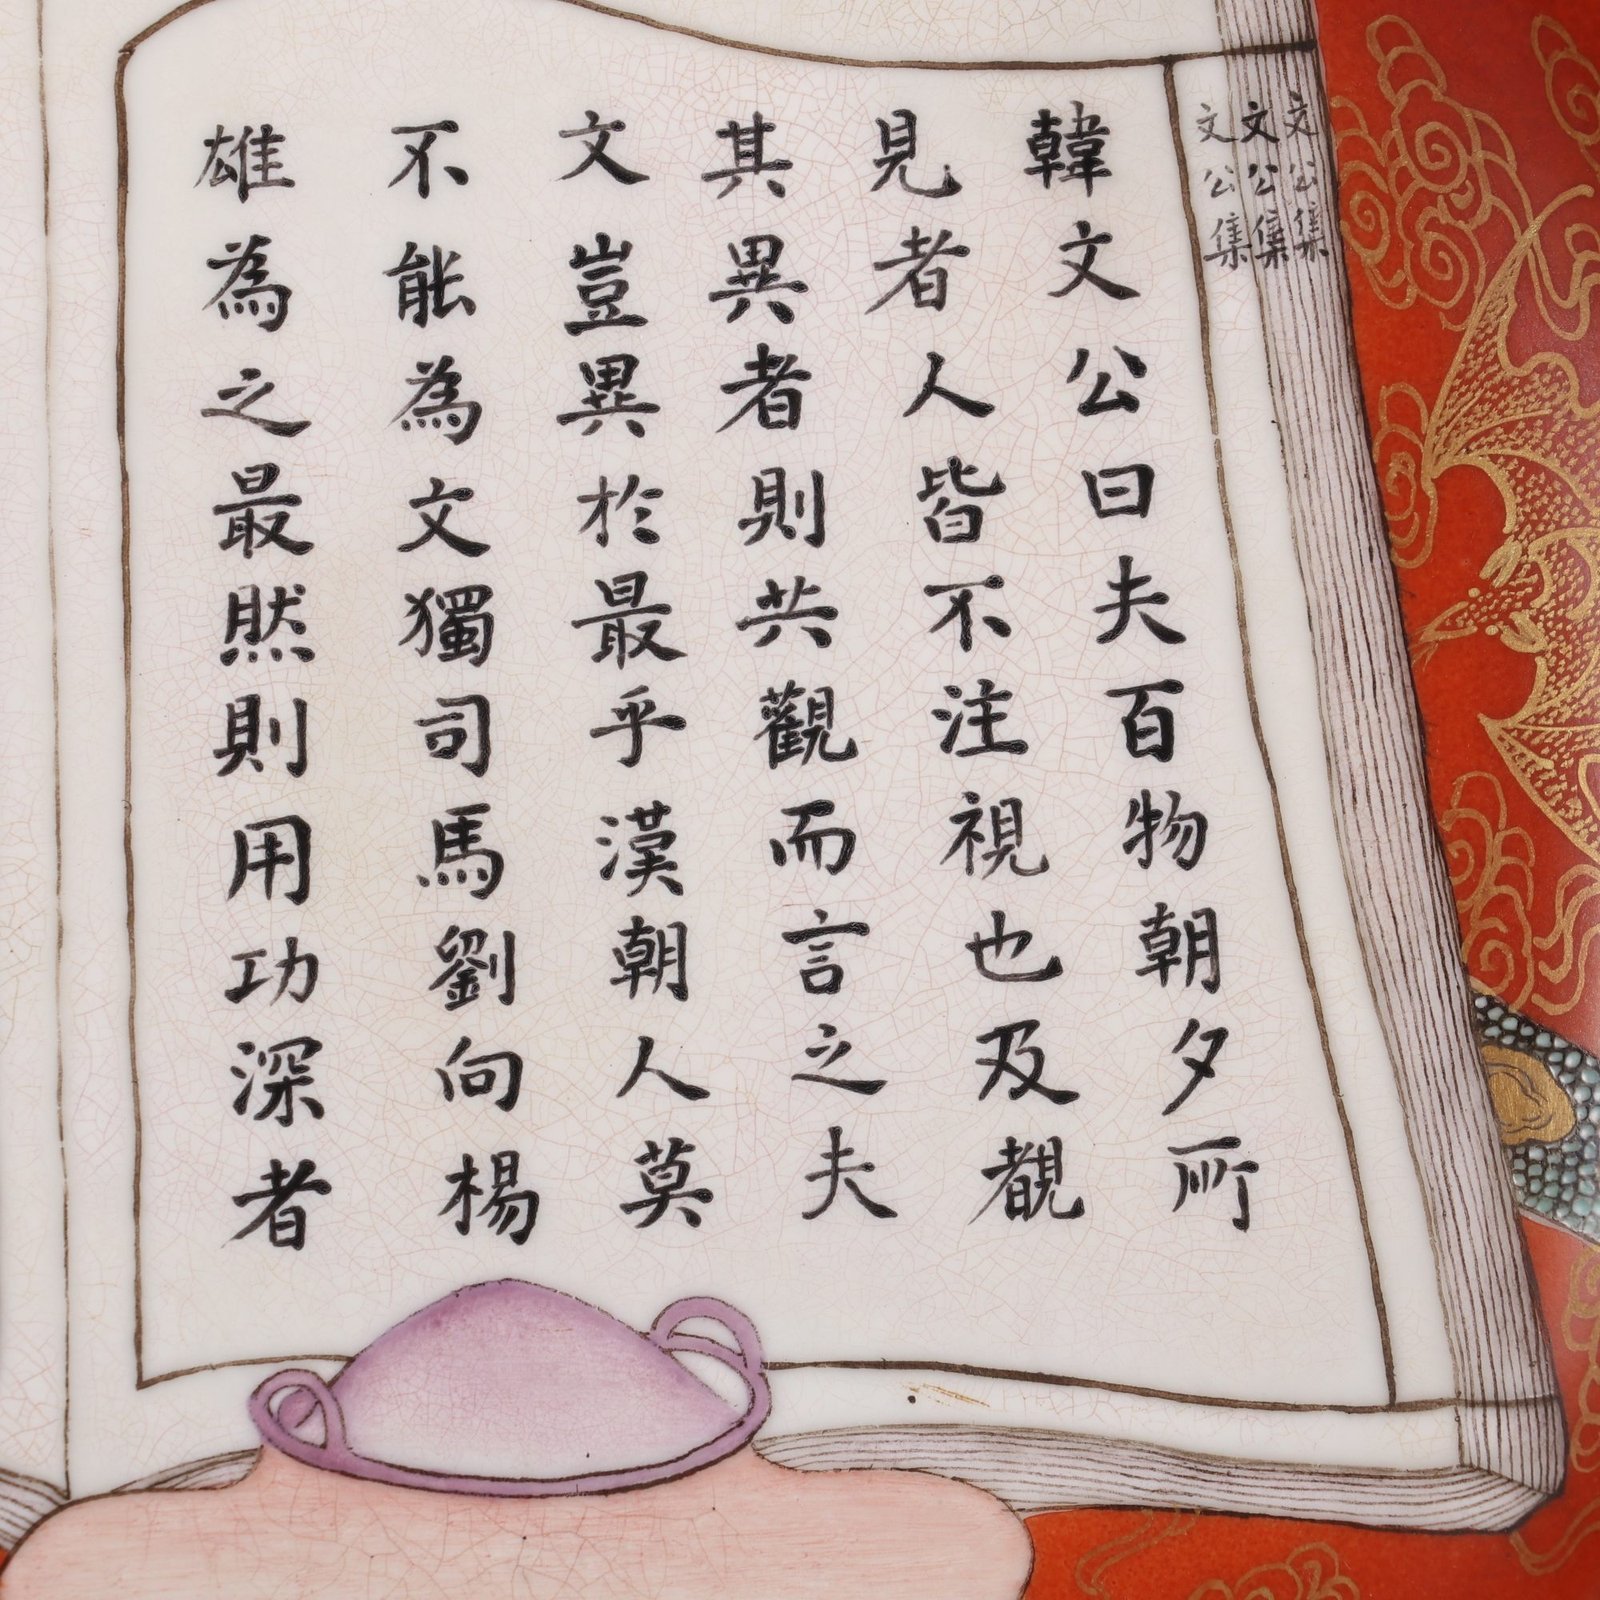 文公集
文公集
文公集
韓文公曰夫百物朝夕所
見者人皆不注視也及覩
其異者則共觀而言之夫
文豈異於最乎漢朝人莫
不能為文獨司馬劉向楊
雄為之最然則用功深者